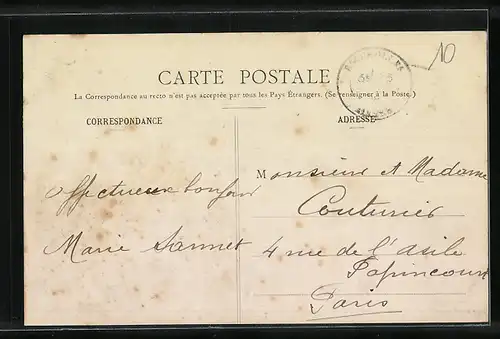 10
CARTE POSTALE
La Correspondance au recto n'est pas acceptée par tous les Pays Étrangers. (Se renseigner à la Poste.)
CORRESPONDANCE
ADRESSE
Affectueux bonjour
Marie Sannet
Monsieur et Madame
Couturier
4 rue de l'asile
Popincourt
Paris